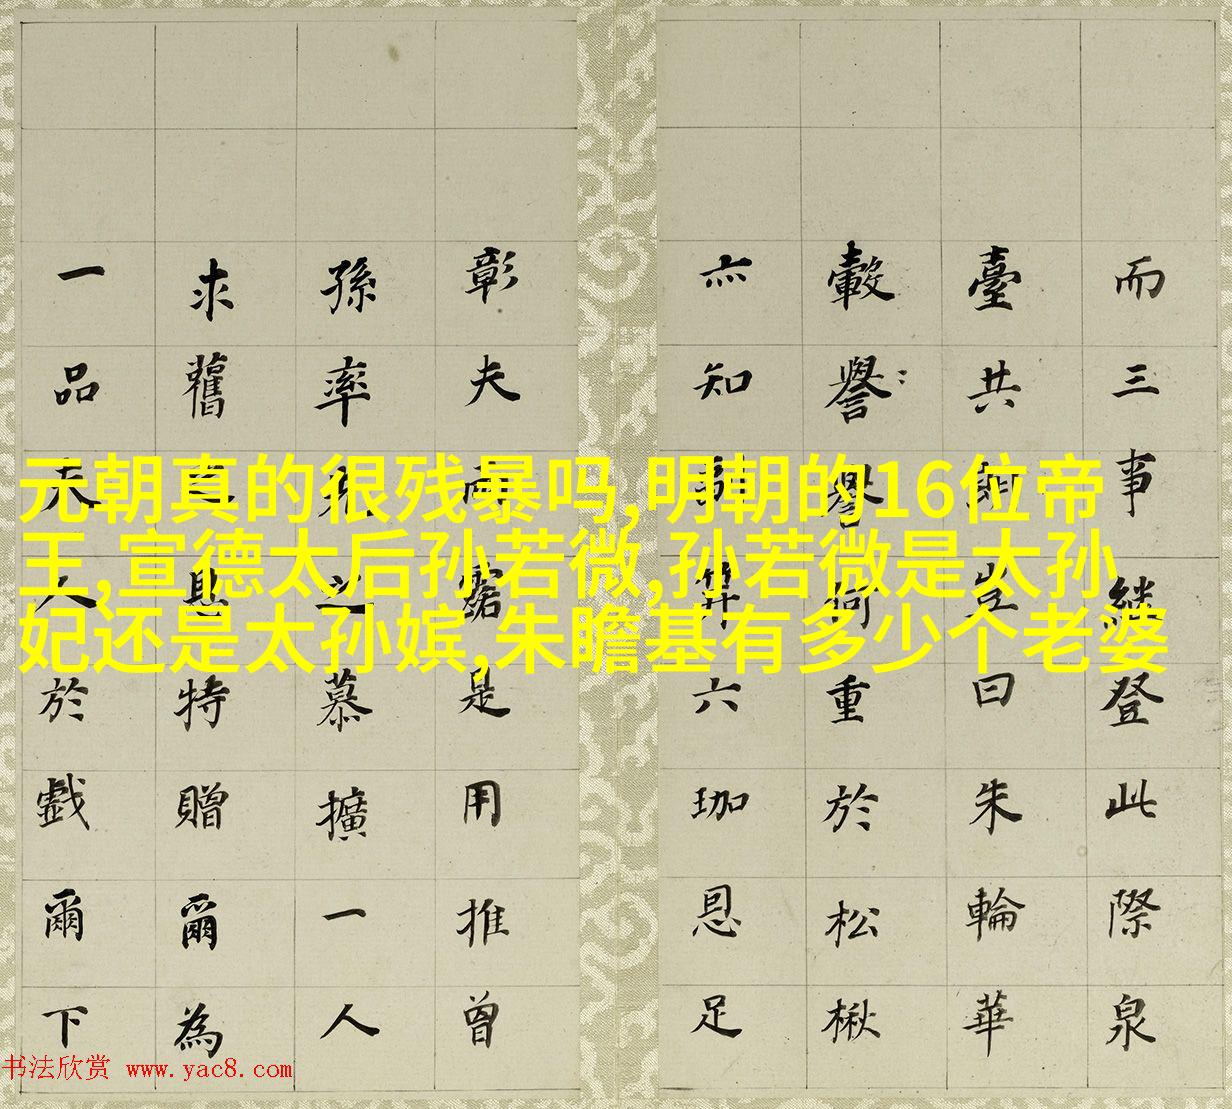 元朝真的很残暴吗,明朝的16位帝
王,宣德太后孙若微,孙若微是太孙
妃还是太孙嫔,朱瞻基有多少个老婆
而三事繼登此際泉
臺共朝豈曰朱輪華
轂譽譽何重於松楸
亦知副笄六珈恩足
彰夫雨露是用推曾
孫率祖之慕擴一人
求舊之恩特贈爾為
一品夫人於戲爾下
书法欣赏 www.yac8.com